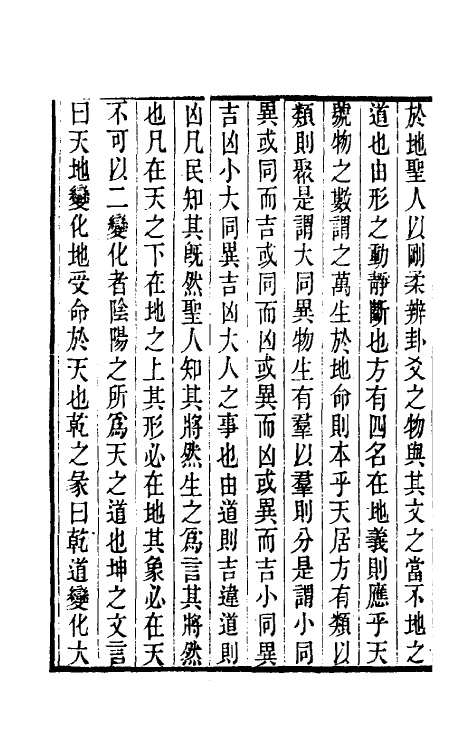 於地聖人以剛柔辨卦爻之物與其文之當不地之
道也由形之動靜斷也方有四名在地義則應乎天
號物之數謂之萬生於地命則本乎天居方有類以
類則聚是謂大同異物生有羣以羣則分是謂小同
異或同而吉或同而凶或異而凶或異而吉小同異
吉凶小大同異吉凶大人之事也由道則吉違道則
凶凡民知其旣然聖人知其將然生之爲言其將然
也凡在天之下在地之上其形必在地其象必在天
不可以二變化者陰陽之所爲天之道也坤之文言
曰天地變化地受命於天也乾之彖曰乾道變化大